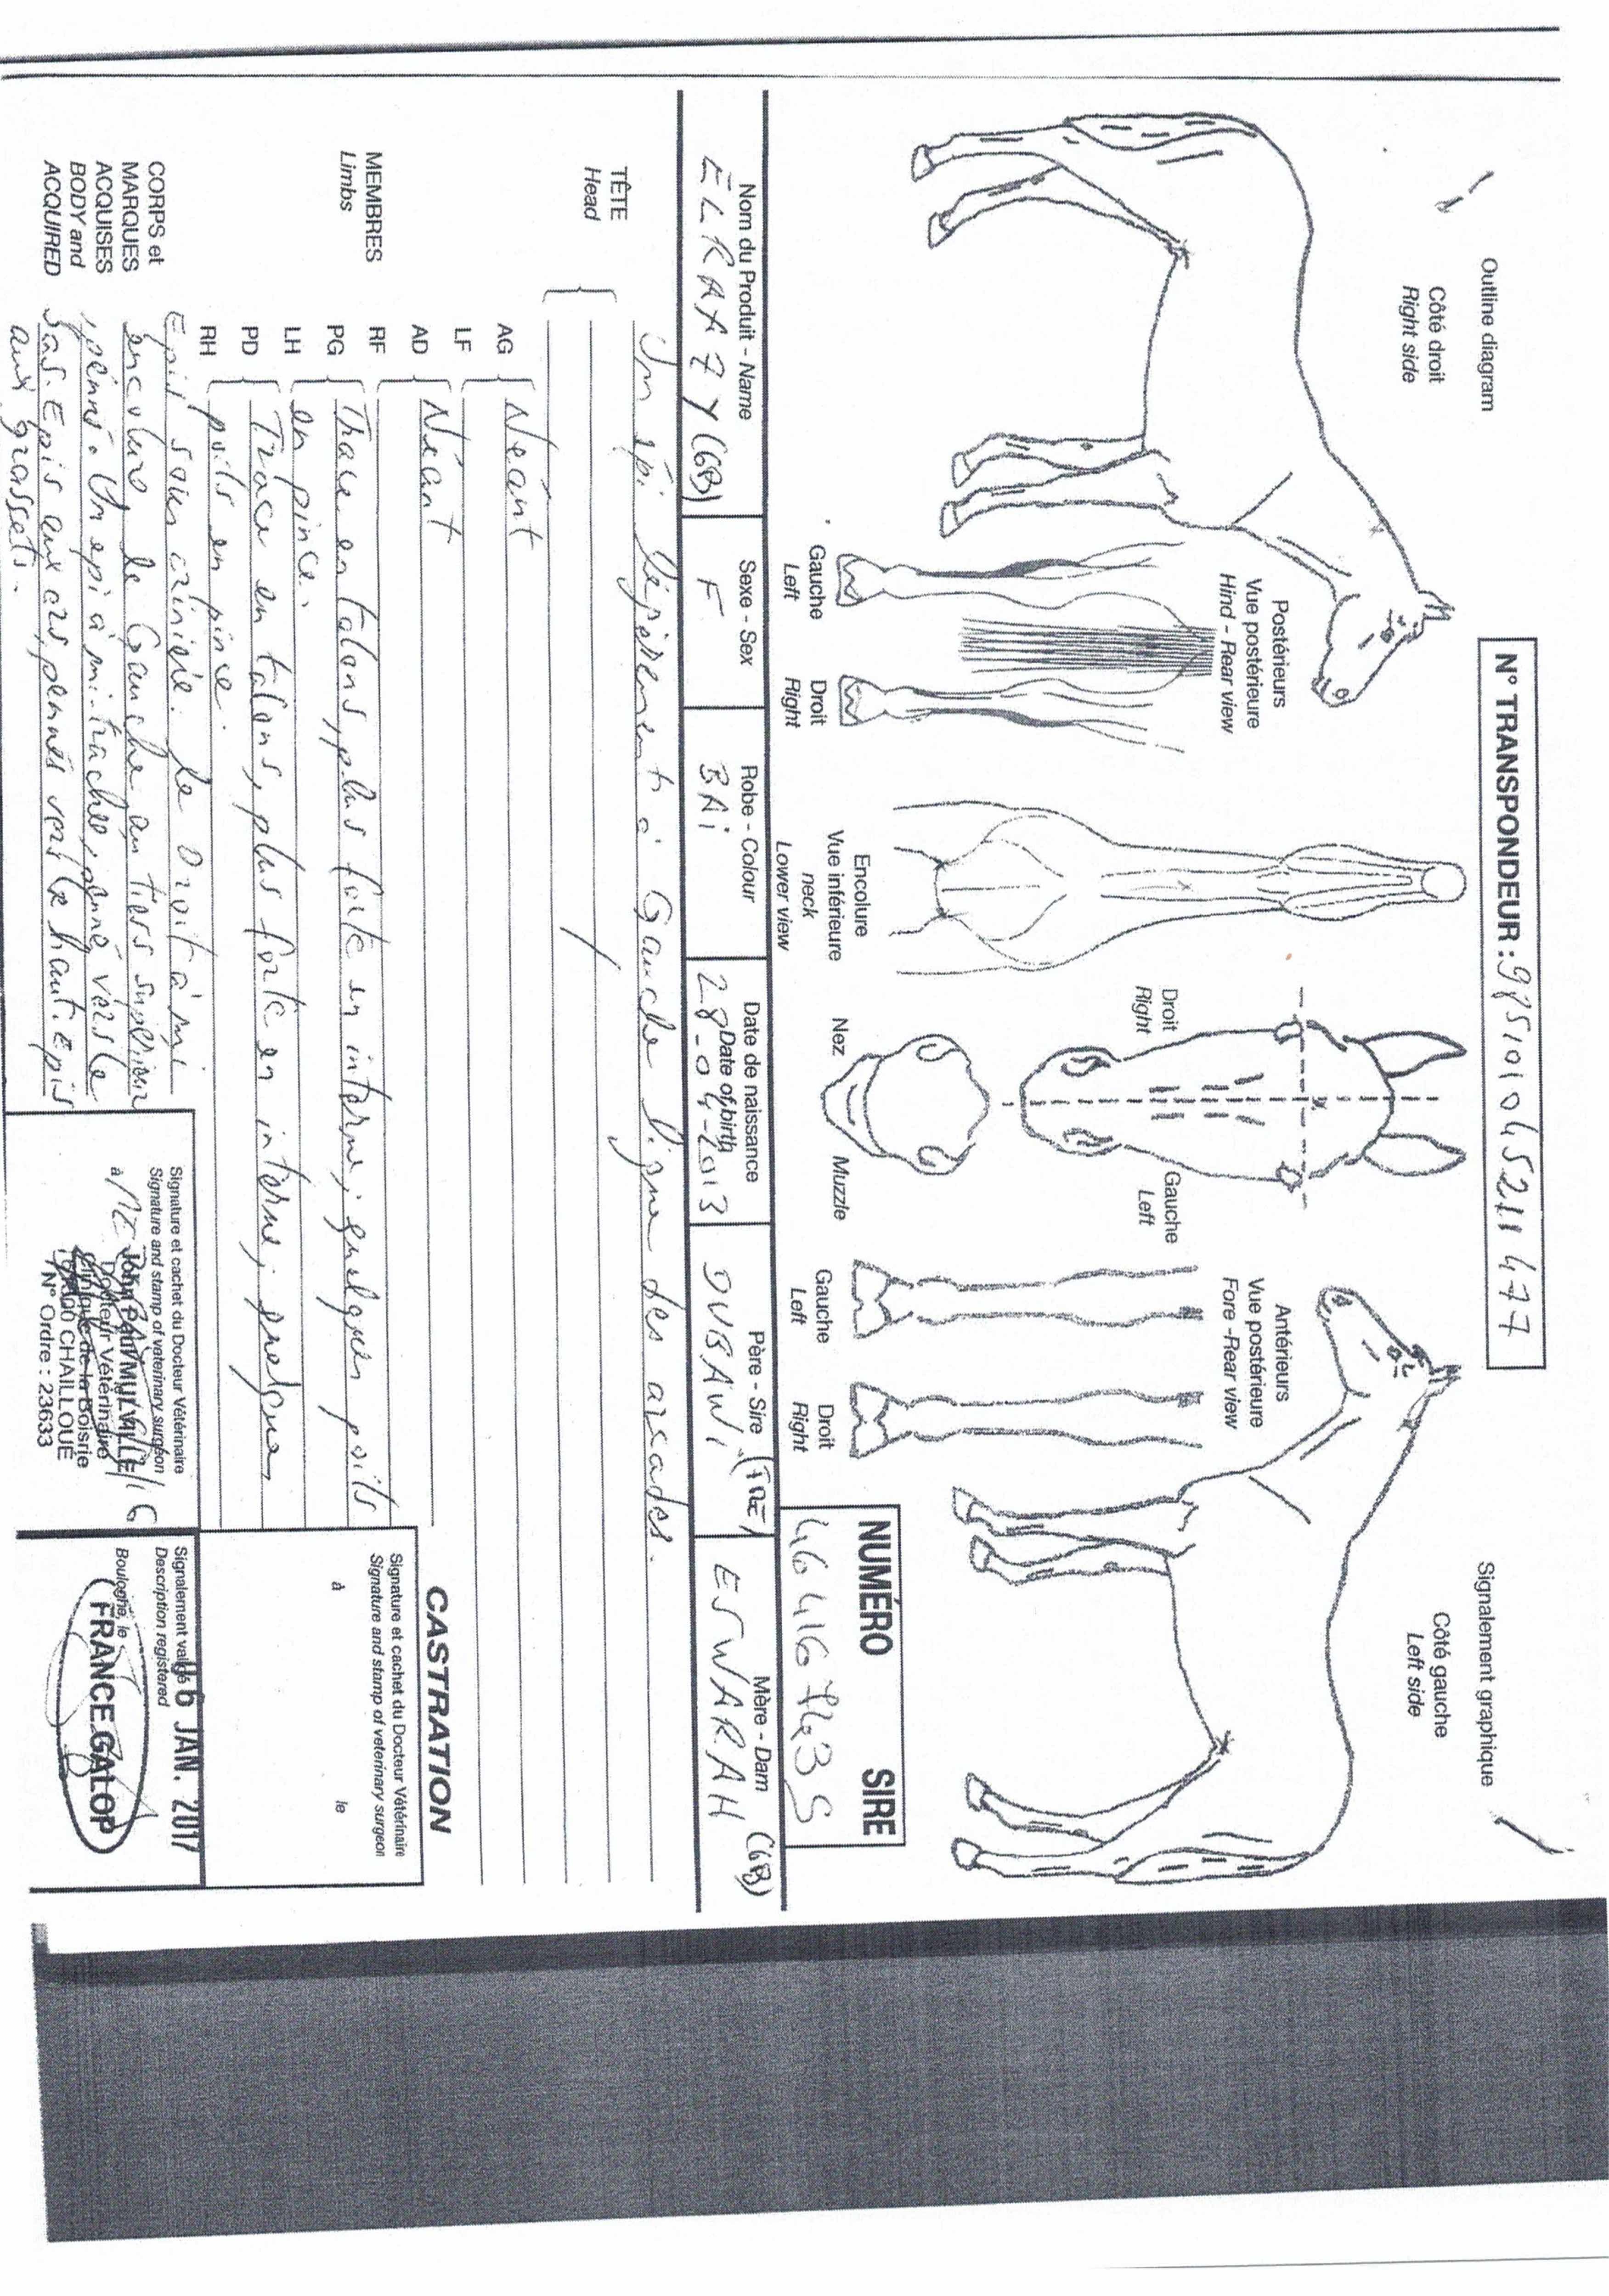 Outline diagram
Signalement graphique
N° TRANSPONDEUR :
Côté droit
Right side
Côté gauche
Left side
Postérieurs
Vue postérieure
Hind - Rear view
Droit
Right
Gauche
Left
Antérieurs
Vue postérieure
Fore -Rear view
Gauche
Left
Droit
Right
Encolure
Vue inférieure
neck
Lower view
Nez
Muzzle
Gauche
Left
Droit
Right
NUMÉRO SIRE
Nom du Produit - Name
ELRAAZY (GB)
Sexe - Sex
F
Robe - Colour
BAi
Date de naissance
Date of birth
28-04-2013
Père - Sire
DUBAWi (IRE)
Mère - Dam
ESWARAH (GB)
TÊTE
Head
Un épi légèrement à Gauche ligne des arcades.
MEMBRES
Limbs
AG
LF
Néant
AD
RF
Néant
PG
LH
Trace en talons, plus forte en interne; quelques poils
en pince.
PD
RH
Trace en talons, plus forte en interne; quelques
poils en pince.
CORPS et
MARQUES
ACQUISES
BODY and
ACQUIRED
Epis sous crinière: le Droit à mi
encolure, le Gauche au tiers supérieur
penné. Un epi à mi-trachée, penné vers le
bas. Epis aux ars, pennés vers le haut. Epis
aux grassets.
CASTRATION
Signature et cachet du Docteur Vétérinaire
Signature and stamp of veterinary surgeon
à le
Signature et cachet du Docteur Vétérinaire
Signature and stamp of veterinary surgeon
à
John Paul MULVILLE
Docteur Vétérinaire
Clinique de la Boisrie
CHAILLOUÉ
N° Ordre : 23633
Signalement validé
Description registered
JAN. 2017
Boulogne, le
FRANCE GALOP